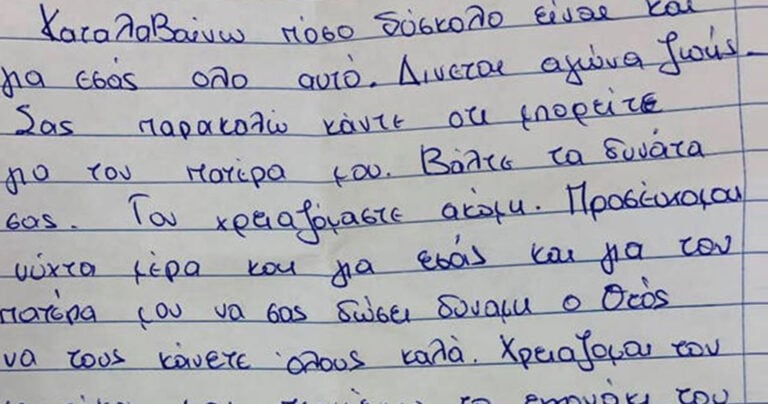 Καταλαβαίνω πόσο δύσκολο είναι και
για εσάς ολο αυτό. Δινεται αγώνα ζωής.
Σας παρακαλώ κάντε οτι μπορείτε
για τον πατέρα μου. Βάλτε τα δυνάτα
σας. Τον χρειαζόμαστε ακόμη. Προσέυχομαι
νύχτα μέρα και για εσάς και για τον
πατέρα μου να σας δώσει δύναμη ο Θεός
να τους κάνετε όλους καλά. Χρειαζομαι τον
το του